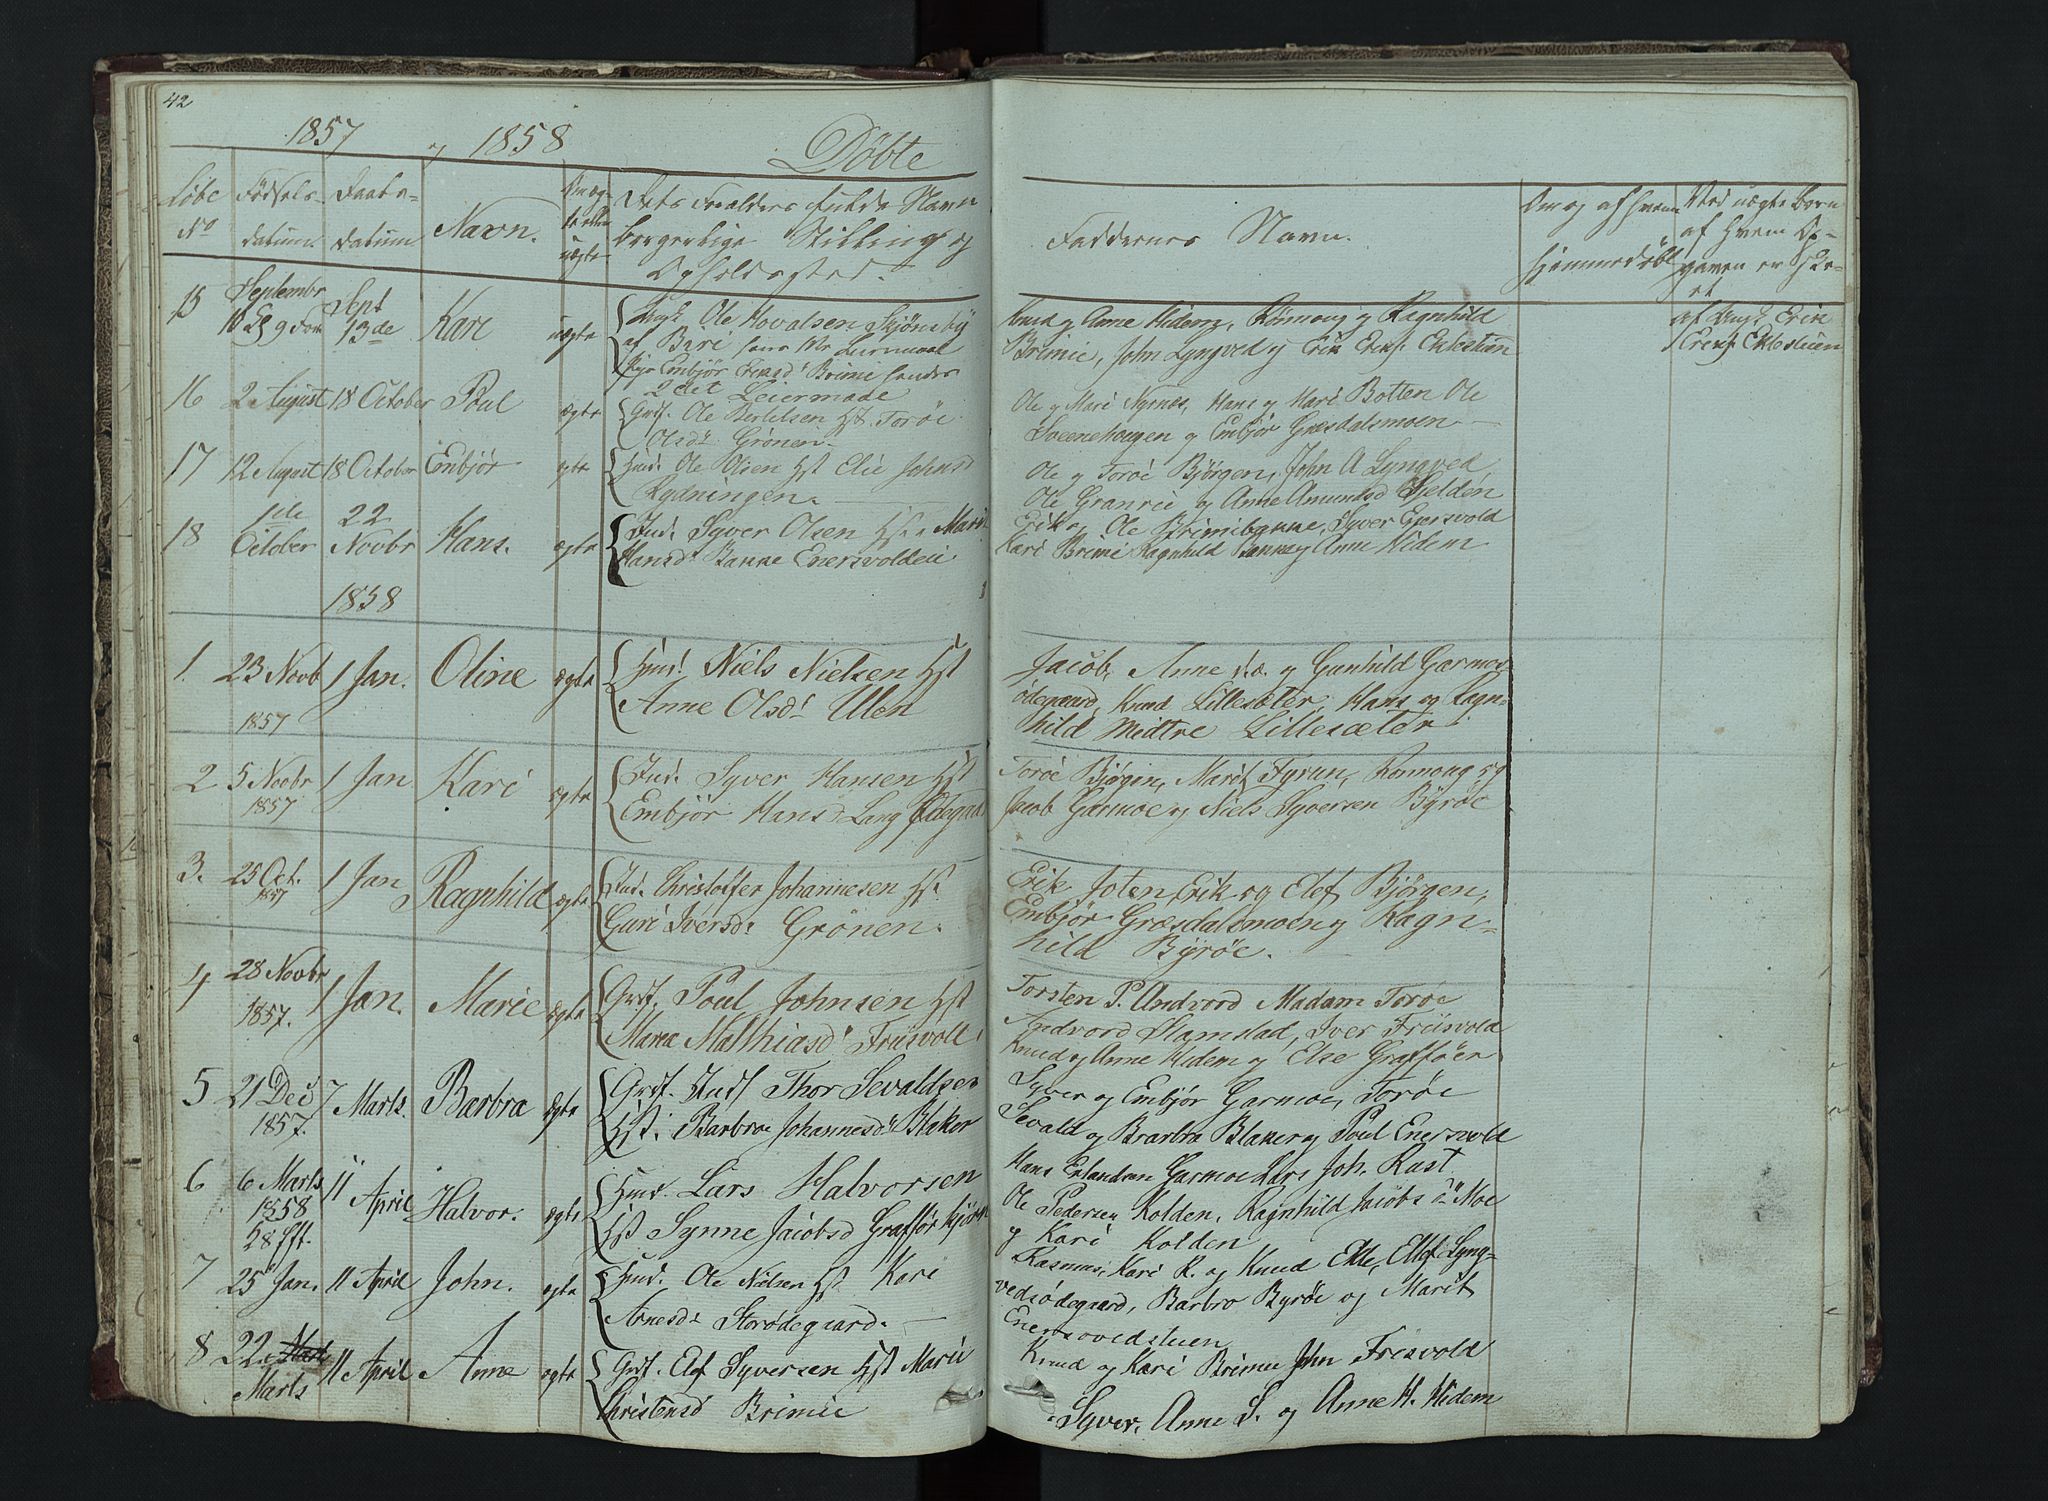 42
1857 og 1858 Døbte
Løbe No
Fødsels datum
Daabs datum
Navn.
Om ægte eller uægte
Dets Forældres fulde Navn
borgerlige Stilling og
Opholdssted.
Faddernes Navn.
Om og af hvem hjemmedøbt
Ved uægte Børn af Hvem Opgaven er skeet
15 Septembr 10 Kl 9 For Sept 13de Kari uægte
Ole Hovalsen Skjønsby
af Bari
Embjør Eriksd Brimi
2det Leiermaale
Knud og Anne Hidem, Rønnoug og Ragnhild
Brimie, John Lyngved og Erik Eriks. Eklestuen
af Ungk Erik
Eriks. Eklestuen
16 2 August 18 October Poul ægte
Grdt. Ole Bertelsen Hst. Toroe
Olsdr Grønen.
Ole og Mari Nyrnes, Hans og Mari Botten Ole
Sveenehougen og Embjør Græsdalsmoen
17 12 August 18 October Embjør ægte
Huusd. Ole Olsen Hst Elie Johnsd
Rydningen.
Ole og Toroe Bjørgen, John A Lyngved,
Ole Granrii og Anne Amundsd Sjelden
18 1ste October 22 Novbr Hans. ægte
Ind. Syver Olsen Hst. Marit
Hansdr Bakke Enersvoldeie
Erik og Ole Brimibakke, Syver Enersvold
Kari Brimi Ragnhild Bakke og Anne Hidem
1858
1. 23 Novb 1857 1 Jan. Oline ægte
Huusd. Niels Nielsen Hst
Anne Olsdr Ulen
Jacob, Anne s.æ. og Gunhild Garmos
ødegaard, Knud Lillesæter, Hans og Ragn-
hild Midtre Lillesæter
2 5 Novbr 1857 1 Jan Kari ægte
Ind. Syver Hansen Hst
Embjør Hansd Lang Ødegaard
Toroe Bjørgen, Marit Tyrun, Ronnoug og
Jacob Garmoe og Niels Syversen Byrøe
3. 25 Oct. 1857 1 Jan Ragnhild ægte
Ind. Christoffer Johannesen Hst.
Guri Iversdr Grønen.
Erik Joten, Erik og Elef Bjørgen,
Embjør Græsdalsmoen og Ragn-
hild Byrøe.
4 28 Novbr 1857. 1 Jan. Marie ægte
Grdt. Poul Johnsen Hst
Maria Mathiasdr Frisvold
Torsten P. Andvord Madam Toroe
Andvord Slamstad, Iver Friisvold
Knud og Anne Hidem og Else Graffoer
5 21 Dec 1857. 7 Marts. Barbra ægte
Grdt. Thor Sevaldsen
Hst. Barbra Johannesdr Blaker
Syver og Embjør Garmoe, Toroe
Sevald og Brarbra Blaker og Poul Enersvold
6 6 Marts 1858 11 April Halvor. ægte
Huusd. Lars Halvorsen
Hst Synne Jacobsd Graffør kjørn
Hans Erlandsen Garmoe Lars Joh. Rust
Ole Pedersen Kolden, Ragnhild Jacobsdr Moe
og Kari Kolden
7 25 Jan. 11 April John. ægte
Huusd. Ole Nielsen Hst Kari
Arnesdr Storødegaard.
Rasmus, Kari R. og Knud Ekle, Ellef Lyng-
vedsødegaard, Barbro Byrøe og Marit
Enersvoldstuen
8 22 Marts 11 April Anne ægte
Grdt. Elef Syversen Hst Marie
Christensd Brimie
Knud og Kari Brimie John Frisvold
Syver, Anne S. og Anne H. Hidem